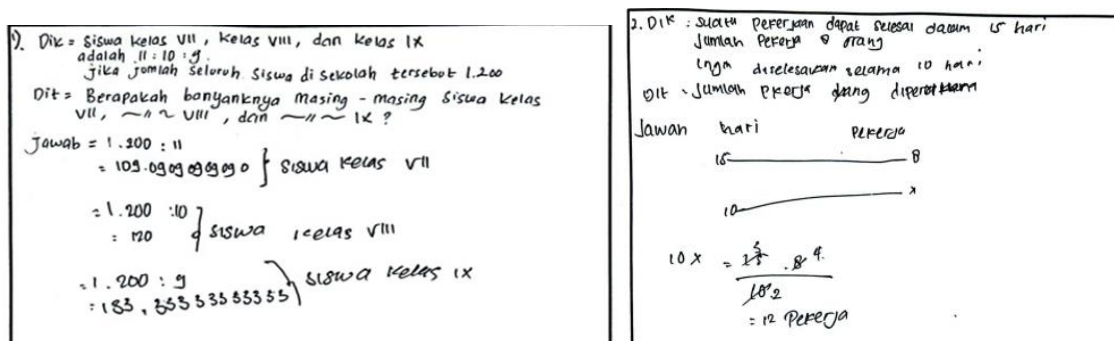 1). Dik = Siswa kelas VII, kelas VIII, dan kelas IX
adalah 11 : 10 : 9.
jika jumlah seluruh siswa di sekolah tersebut 1.200
Dit = Berapakah banyanknya masing - masing siswa kelas
VII, ~〃~ VIII, dan ~〃~ IX ?
Jawab = 1.200 : 11
= 109.0909090909090 } siswa kelas VII
= 1.200 : 10
= 120 } siswa kelas VIII
= 1.200 : 9
= 133,33333333333 } siswa kelas IX
2. Dik : suatu pekerjaan dapat selesai dalam 15 hari
Jumlah pekerja 8 orang
ingin diselesaikan selama 10 hari
Dit : Jumlah pkerja yang diperlukan
Jawan hari pekerja
15 — 8
10 — x
10 x = 15 3 . 8 4
10 2
= 12 pekerja